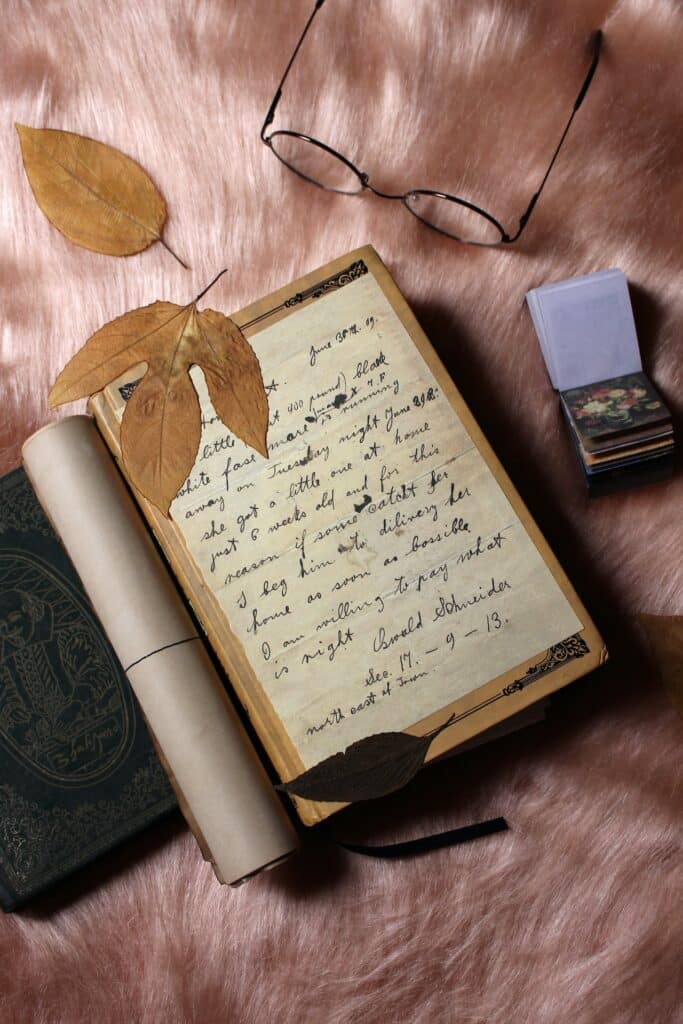 June 30th. 09.
little 400 pound) black
white face mare running
away on Tuesday night June 29th.
she got a little one at home
just 6 weeks old and for this
reason if some catcht her
I beg him to dilivery her
home as soon as bossible
I am willing to pay what
is right Oswald Schneider
Sec. 17. – 9 – 13.
north east of Town.